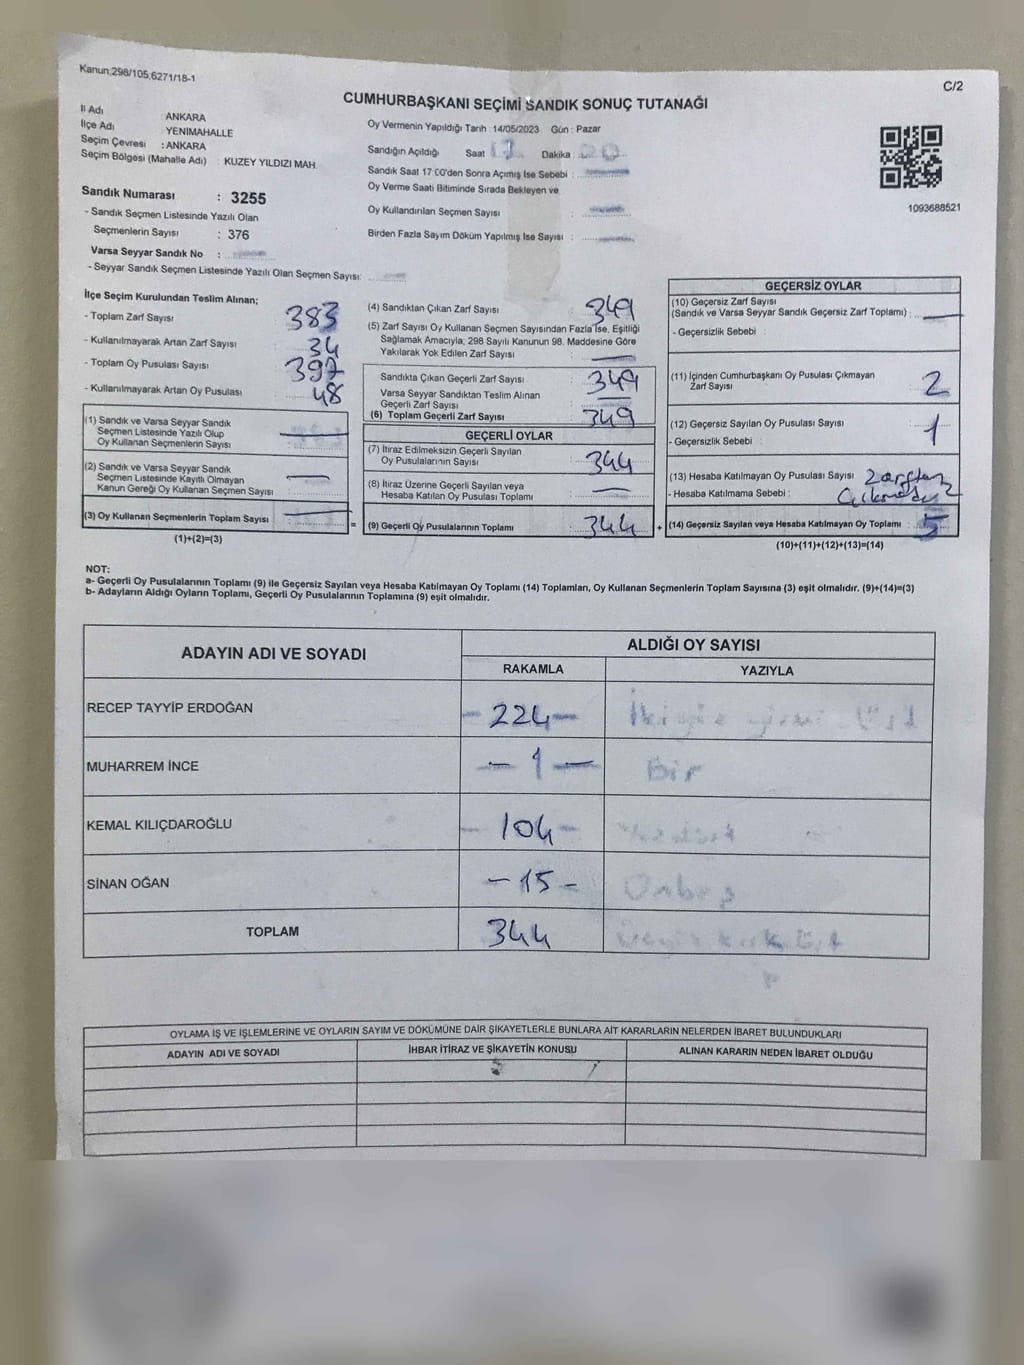 Kanun;298/105;6271/18-1
C/2
CUMHURBAŞKANI SEÇİMİ SANDIK SONUÇ TUTANAĞI
İl Adı ANKARA
İlçe Adı YENİMAHALLE
Seçim Çevresi : ANKARA
Seçim Bölgesi (Mahalle Adı) : KUZEY YILDIZI MAH.
Sandık Numarası : 3255
- Sandık Seçmen Listesinde Yazılı Olan
Seçmenlerin Sayısı : 376
Varsa Seyyar Sandık No :
- Seyyar Sandık Seçmen Listesinde Yazılı Olan Seçmen Sayısı:
Oy Vermenin Yapıldığı Tarih : 14/05/2023 Gün : Pazar
Sandığın Açıldığı Saat Dakika
Sandık Saat 17:00'den Sonra Açımış İse Sebebi :
Oy Verme Saati Bitiminde Sırada Bekleyen ve
Oy Kullandırılan Seçmen Sayısı :
Birden Fazla Sayım Döküm Yapılmış İse Sayısı :
1093688521
İlçe Seçim Kurulundan Teslim Alınan;
- Toplam Zarf Sayısı 383
- Kullanılmayarak Artan Zarf Sayısı 34
- Toplam Oy Pusulası Sayısı 397
- Kullanılmayarak Artan Oy Pusulası 48
(1) Sandık ve Varsa Seyyar Sandık
Seçmen Listesinde Yazılı Olup
Oy Kullanan Seçmenlerin Sayısı
(2) Sandık ve Varsa Seyyar Sandık
Seçmen Listesinde Kayıtlı Olmayan
Kanun Gereği Oy Kullanan Seçmen Sayısı
(3) Oy Kullanan Seçmenlerin Toplam Sayısı
(1)+(2)=(3)
(4) Sandıktan Çıkan Zarf Sayısı : 349
(5) Zarf Sayısı Oy Kullanan Seçmen Sayısından Fazla İse, Eşitliği
Sağlamak Amacıyla, 298 Sayılı Kanunun 98. Maddesine Göre
Yakılarak Yok Edilen Zarf Sayısı :
Sandıkta Çıkan Geçerli Zarf Sayısı : 349
Varsa Seyyar Sandıktan Teslim Alınan
Geçerli Zarf Sayısı :
(6) Toplam Geçerli Zarf Sayısı : 349
GEÇERLİ OYLAR
(7) İtiraz Edilmeksizin Geçerli Sayılan
Oy Pusulalarının Sayısı : 344
(8) İtiraz Üzerine Geçerli Sayılan veya
Hesaba Katılan Oy Pusulası Toplamı :
= (9) Geçerli Oy Pusulalarının Toplamı : 344
GEÇERSİZ OYLAR
(10) Geçersiz Zarf Sayısı
(Sandık ve Varsa Seyyar Sandık Geçersiz Zarf Toplamı) :
- Geçersizlik Sebebi :
(11) İçinden Cumhurbaşkanı Oy Pusulası Çıkmayan
Zarf Sayısı : 2
(12) Geçersiz Sayılan Oy Pusulası Sayısı : 1
- Geçersizlik Sebebi :
(13) Hesaba Katılmayan Oy Pusulası Sayısı : Zarftan 2
- Hesaba Katılmama Sebebi : Çıkmadı
+ (14) Geçersiz Sayılan veya Hesaba Katılmayan Oy Toplamı : 5
(10)+(11)+(12)+(13)=(14)
NOT:
a- Geçerli Oy Pusulalarının Toplamı (9) ile Geçersiz Sayılan veya Hesaba Katılmayan Oy Toplamı (14) Toplamları, Oy Kullanan Seçmenlerin Toplam Sayısına (3) eşit olmalıdır. (9)+(14)=(3)
b- Adayların Aldığı Oyların Toplamı, Geçerli Oy Pusulalarının Toplamına (9) eşit olmalıdır.
ADAYIN ADI VE SOYADI
ALDIĞI OY SAYISI
RAKAMLA YAZIYLA
RECEP TAYYİP ERDOĞAN - 224 - İkiyüz yirmi dört
MUHARREM İNCE - 1 - Bir
KEMAL KILIÇDAROĞLU - 104 -
SİNAN OĞAN - 15 - Onbeş
TOPLAM 344
OYLAMA İŞ VE İŞLEMLERİNE VE OYLARIN SAYIM VE DÖKÜMÜNE DAİR ŞİKAYETLERLE BUNLARA AİT KARARLARIN NELERDEN İBARET BULUNDUKLARI
ADAYIN ADI VE SOYADI İHBAR İTİRAZ VE ŞİKAYETİN KONUSU ALINAN KARARIN NEDEN İBARET OLDUĞU